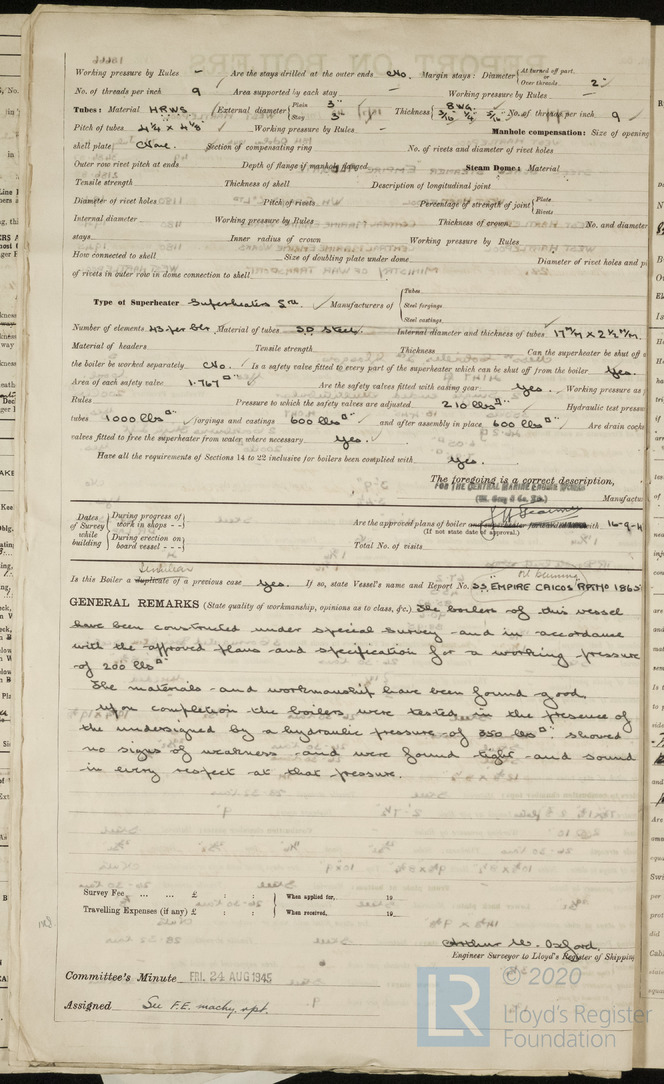 Working pressure by Rules - Are the stays drilled at the outer ends No. Margin stays: Diameter { At turned off part, Over threads 2"
No. of threads per inch 9 Area supported by each stay Working pressure by Rules -
Tubes: Material HRWS External diameter { Plain 3" Stay 3" Thickness { 8 WG. 3/16 1/4 5/16 No. of threads per inch 9
Pitch of tubes 4 1/4 x 4 1/8 Working pressure by Rules - Manhole compensation: Size of opening
shell plate None. Section of compensating ring No. of rivets and diameter of rivet holes
Outer row rivet pitch at ends Depth of flange if manhole flanged Steam Dome: Material
Tensile strength Thickness of shell Description of longitudinal joint
Diameter of rivet holes Pitch of rivets Percentage of strength of joint { Plate Rivets
Internal diameter Working pressure by Rules Thickness of crown No. and diameter
stays Inner radius of crown Working pressure by Rules
How connected to shell Size of doubling plate under dome Diameter of rivet holes and pi
of rivets in outer row in dome connection to shell
Type of Superheater Superheaters Manufacturers of { Tubes Steel forgings Steel castings
Number of elements 43 per blr. Material of tubes SD Steel Internal diameter and thickness of tubes 17 m/m x 2 1/2 m/m.
Material of headers Tensile strength Thickness Can the superheater be shut off
the boiler be worked separately No. Is a safety valve fitted to every part of the superheater which can be shut off from the boiler Yes.
Area of each safety valve 1.767 □" Are the safety valves fitted with easing gear Yes. Working pressure as
Rules Pressure to which the safety valves are adjusted 210 lbs □" Hydraulic test pressure
tubes 1000 lbs □" forgings and castings 600 lbs □" and after assembly in place 600 lbs □" Are drain cocks
valves fitted to free the superheater from water where necessary Yes.
Have all the requirements of Sections 14 to 22 inclusive for boilers been complied with Yes.
The foregoing is a correct description,
FOR THE CENTRAL MARINE ENGINE WORKS
(Wm. Gray & Co. Ltd.) Manufactu
Dates of Survey while building { During progress of work in shops - - During erection on board vessel - - - } Are the approved plans of boiler and superheater forwarded herewith 16-9-4
(If not state date of approval.)
Total No. of visits
Similar
Is this Boiler a duplicate of a previous case Yes. If so, state Vessel's name and Report No. SS "EMPIRE CAICOS"
GENERAL REMARKS (State quality of workmanship, opinions as to class, &c.) The boilers of this vessel
have been constructed under special survey and in accordance
with the approved plans and specification for a working pressure
of 200 lbs □"
The materials and workmanship have been found good.
Upon completion the boilers were tested in the presence of
the undersigned by a hydraulic pressure of 350 lbs □" showed
no signs of weakness and were found tight and sound
in every respect at that pressure.
Survey Fee ... ... £ : : When applied for, 19
Travelling Expenses (if any) £ : : When received, 19
Arthur W. Oxford,
Engineer Surveyor to Lloyd's Register of Shipping
Committee's Minute FRI. 24 AUG 1945
Assigned See F.E. machy. rpt.
© 2020
LR Lloyd's Register
Foundation